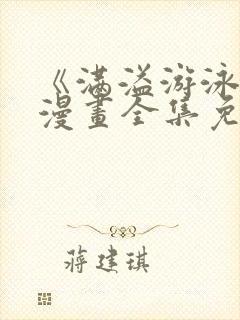 《满溢游泳
漫畫全集免
蒋建琪